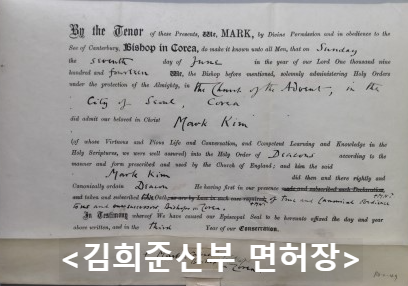 By the Tenor of these Presents, We, MARK, by Divine Permission and in obedience to the
See of Canterbury, Bishop in Corea, do make it known unto all Men, that on Sunday
the seventh day of June in the year of our Lord One thousand nine
hundred and fourteen We, the Bishop before mentioned, solemnly administering Holy Orders
under the protection of the Almighty, in The Church of the Advent, in the
City of Seoul, Corea
did admit our beloved in Christ
Mark Kim
(of whose Virtuous and Pious Life and Conversation, and Competent Learning and Knowledge in the
Holy Scriptures, we were well assured) into the Holy Order of Deacons according to the
manner and form prescribed and used by the Church of England; and him the said
Mark Kim did then and there rightly and
Canonically ordain Deacon He having first in our presence made and subscribed such Declaration,
and taken and subscribed of True and Canonical Obedience
to us and our successors Bishops in Corea.
In Testimony whereof We have caused our Episcopal Seal to be hereunto affixed the day and year
above written, and in the third Year of our Consecration.
<김희준신부 면허장>
Corea